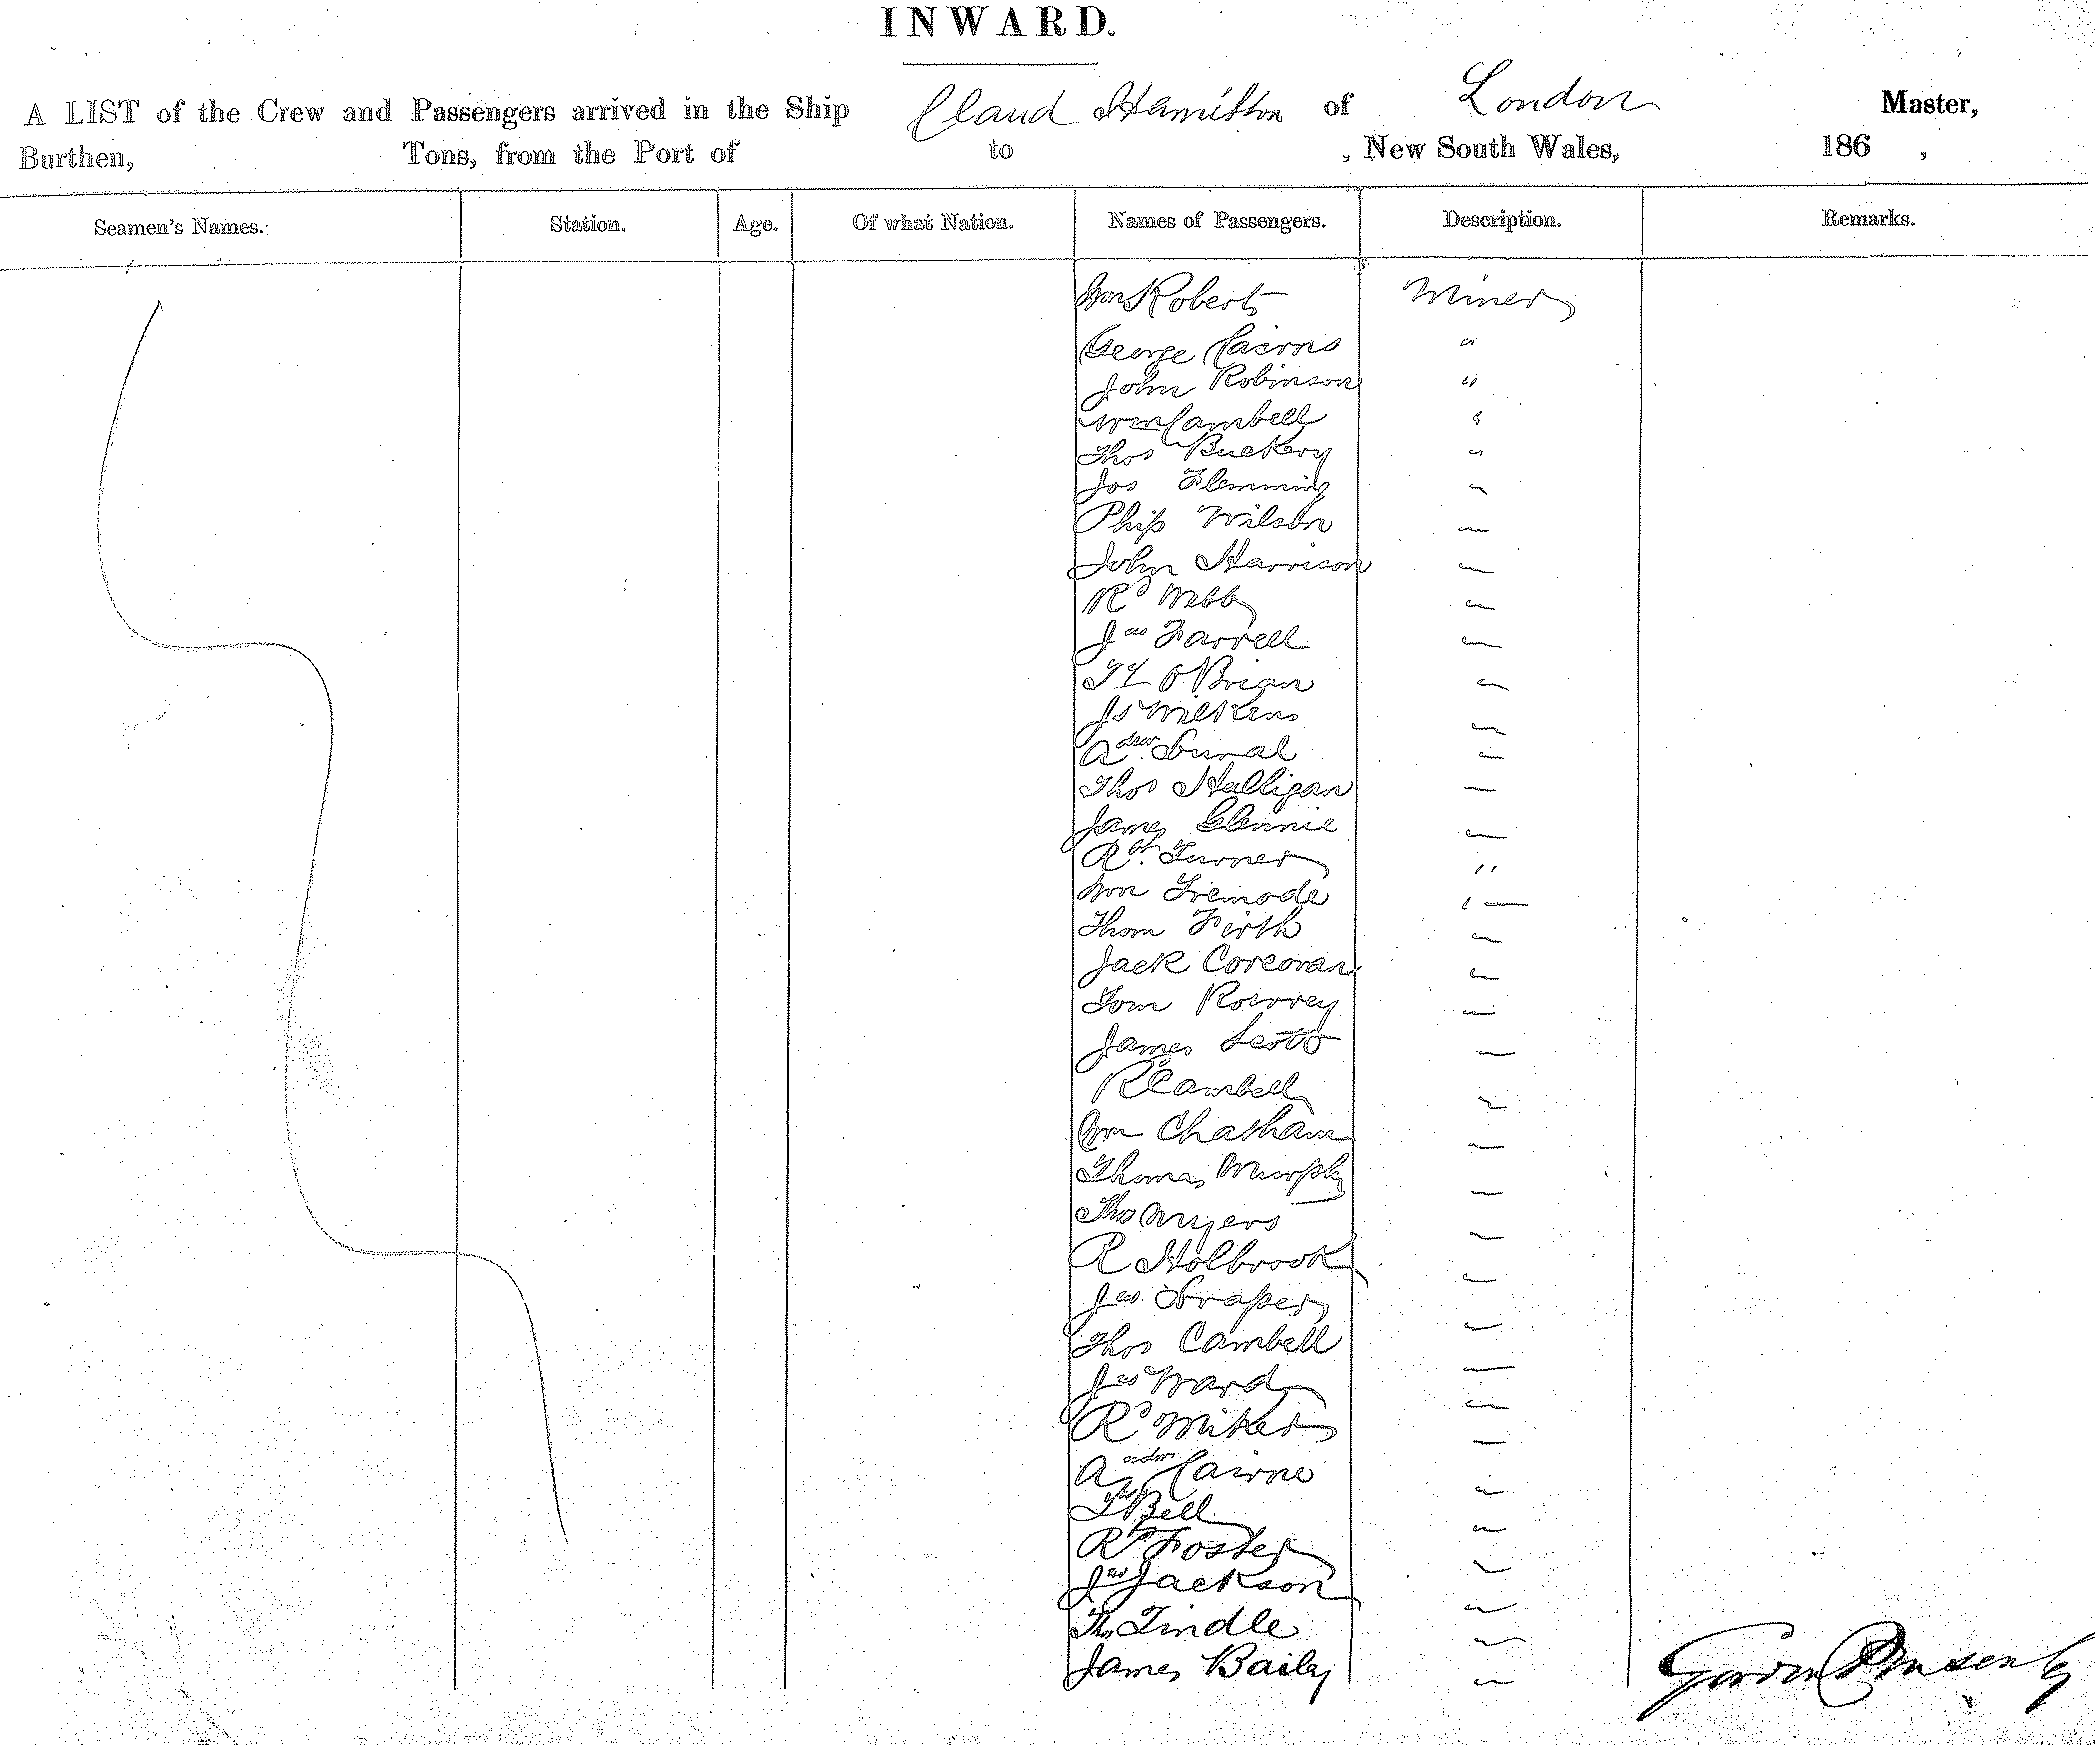 INWARD.
A LIST of the Crew and Passengers arrived in the Ship Claud Hamilton of London Master,
Burthen, Tons, from the Port of to , New South Wales, 186 ,
Seamen's Names. Station. Age. Of what Nation. Names of Passengers. Description. Remarks.
Wm Roberts Miner
George Cairns "
John Robinson "
Wm Cambell "
Thos "
Jos Flemming "
Philp Wilson "
John Harrison "
Rd Webb "
Jas Farrell "
O'Brian "
Js Wilkins "
Adw "
Thos Halligan "
James "
Rbt Turner "
Wm "
Thom Firth "
Jack Corcoran "
Tom "
James "
R Cambell "
Wm Chatham "
Thomas Murphy "
Thos Myers "
R Holbrook "
Jas Draper "
Thos Cambell "
Jas Ward "
Rd "
Andw Cairns "
Ts Bell "
Rd Foster "
Jas Jackson "
Th Tindle "
James Baily "